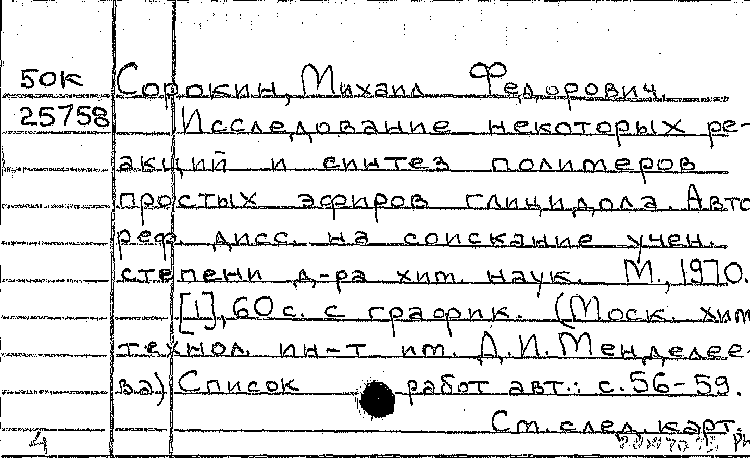 50к Сорокин, Михаил Федорович.
25758 Исследование некоторых ре-
акций и синтез полимеров
простых эфиров глицидола. Авто
реф. дисс. на соискание учен.
степени д-ра хим. наук. М., 1970.
[1], 60 с. с график. (Моск. хим
технол. ин-т им. Д.И. Менделее-
ва) Список работ авт.: с. 56-59.
См. след. карт.
4